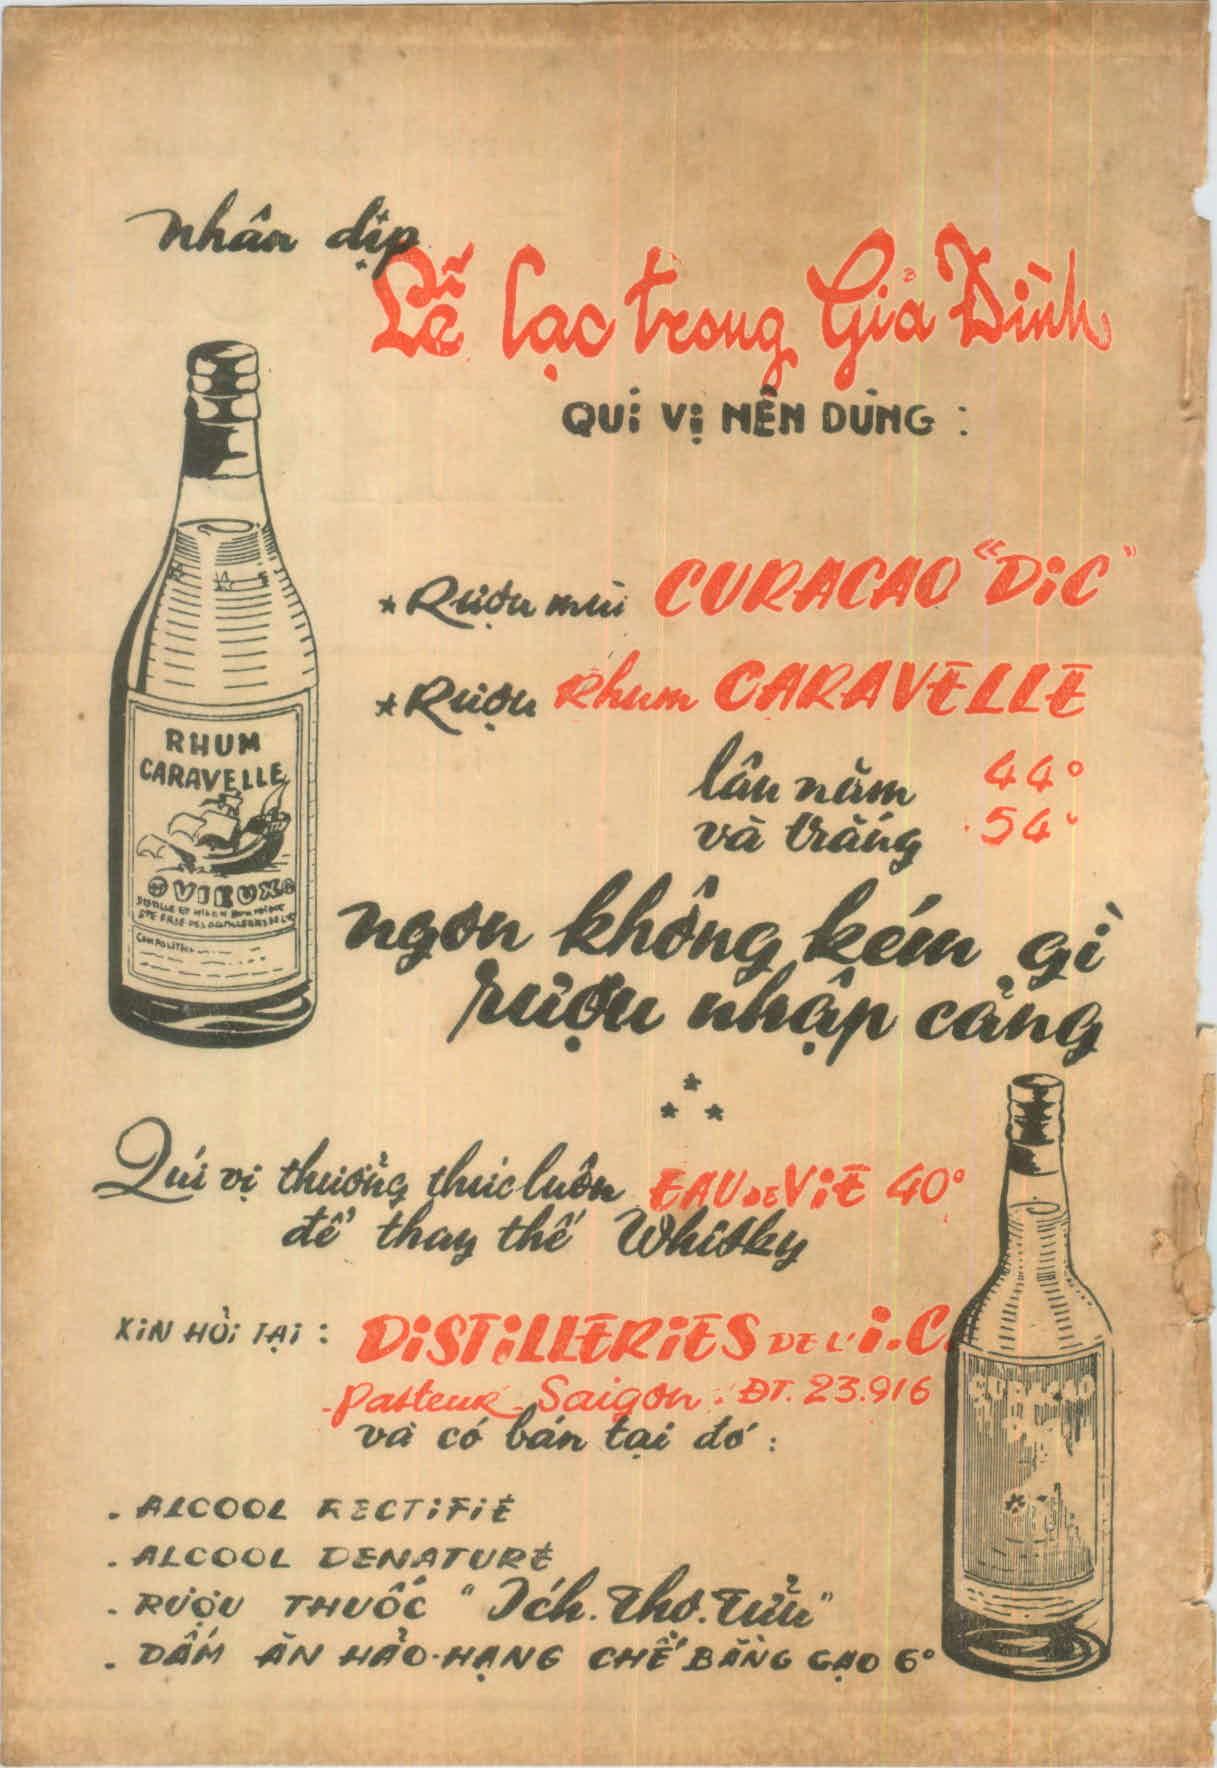 Nhân dịp
Lễ lạc trong Gia Đình
QUÍ VỊ NÊN DÙNG :
* Rượu mùi CURACAO "DIC"
* Rượu Rhum CARAVELLE
lâu năm 44°
và trắng 54°
ngon không kém gì
rượu nhập cảng
Quí vị thưởng thức luôn EAU DE VIE 40°
để thay thế Whisky
XIN HỎI TẠI : DISTILLERIES DE L'I.C.
Pasteur - Saigon : ĐT. 23.916
và có bán tại đó :
. ALCOOL RECTIFIÉ
. ALCOOL DENATURÉ
. RƯỢU THUỐC "Ích.Thọ.Tửu"
. DẤM ĂN HẢO-HẠNG CHẾ BẰNG GẠO 6°
RHUM
CARAVELLE
VIEUX
CURACAO